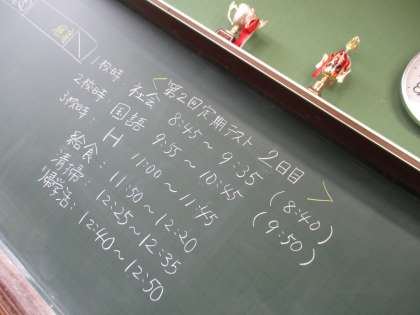 <第2回定期テスト 2日目>
1校時: 社会 8:45~9:35 (8:40)
2校時: 国語 9:55~10:45 (9:50)
3校時: H 11:00~11:45
給食: 11:50~12:20
清掃: 12:25~12:35
帰学活: 12:40~12:50